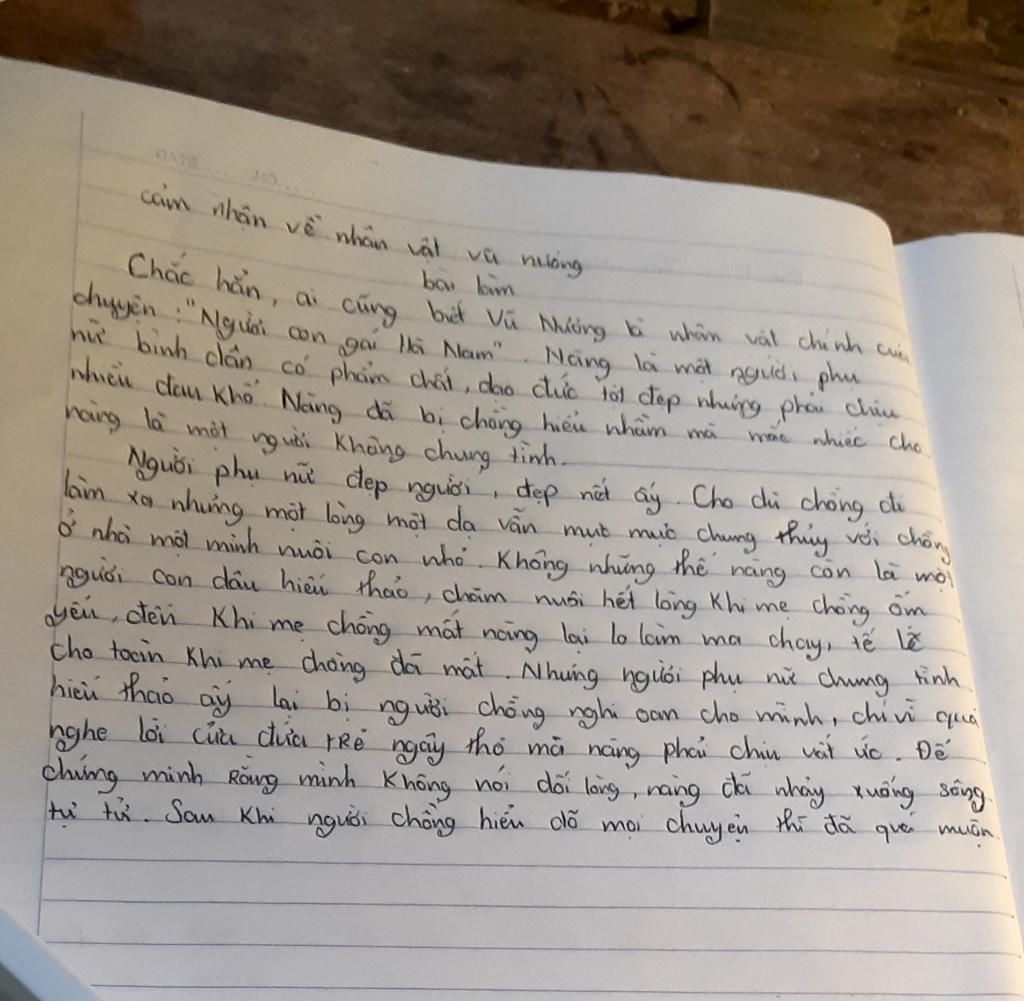 DATE ..... NO....
cảm nhận về nhân vật vũ nương
bài làm
Chắc hẳn, ai cũng biết Vũ Nương là nhân vật chính của
chuyện : "Người con gái Hà Nam". Nàng là một người phụ
nữ bình dân có phẩm chất, đạo đức tốt đẹp nhưng phải chịu
nhiều đau khổ. Nàng đã bị chồng hiểu nhầm mà mắc nhiếc cho
nàng là một người không chung tình.
Người phụ nữ đẹp người, đẹp nết ấy. Cho dù chồng đi
làm xa nhưng một lòng một dạ vẫn mực mực chung thủy với chồng
ở nhà một mình nuôi con nhỏ. Không những thế nàng còn là một
người con dâu hiếu thảo, chăm nuôi hết lòng khi mẹ chồng ốm
yếu, đến khi mẹ chồng mất nàng lại lo làm ma chay, tế lễ
cho toàn khi mẹ chồng đã mất. Nhưng người phụ nữ chung tình
hiếu thảo ấy lại bị người chồng nghi oan cho mình, chỉ vì quá
nghe lời của đứa trẻ ngây thơ mà nàng phải chịu uất ức. Để
chứng minh rằng mình không nói dối lòng, nàng đã nhảy xuống sông
tự tử. Sau khi người chồng hiểu dõ mọi chuyện thì đã quá muộn